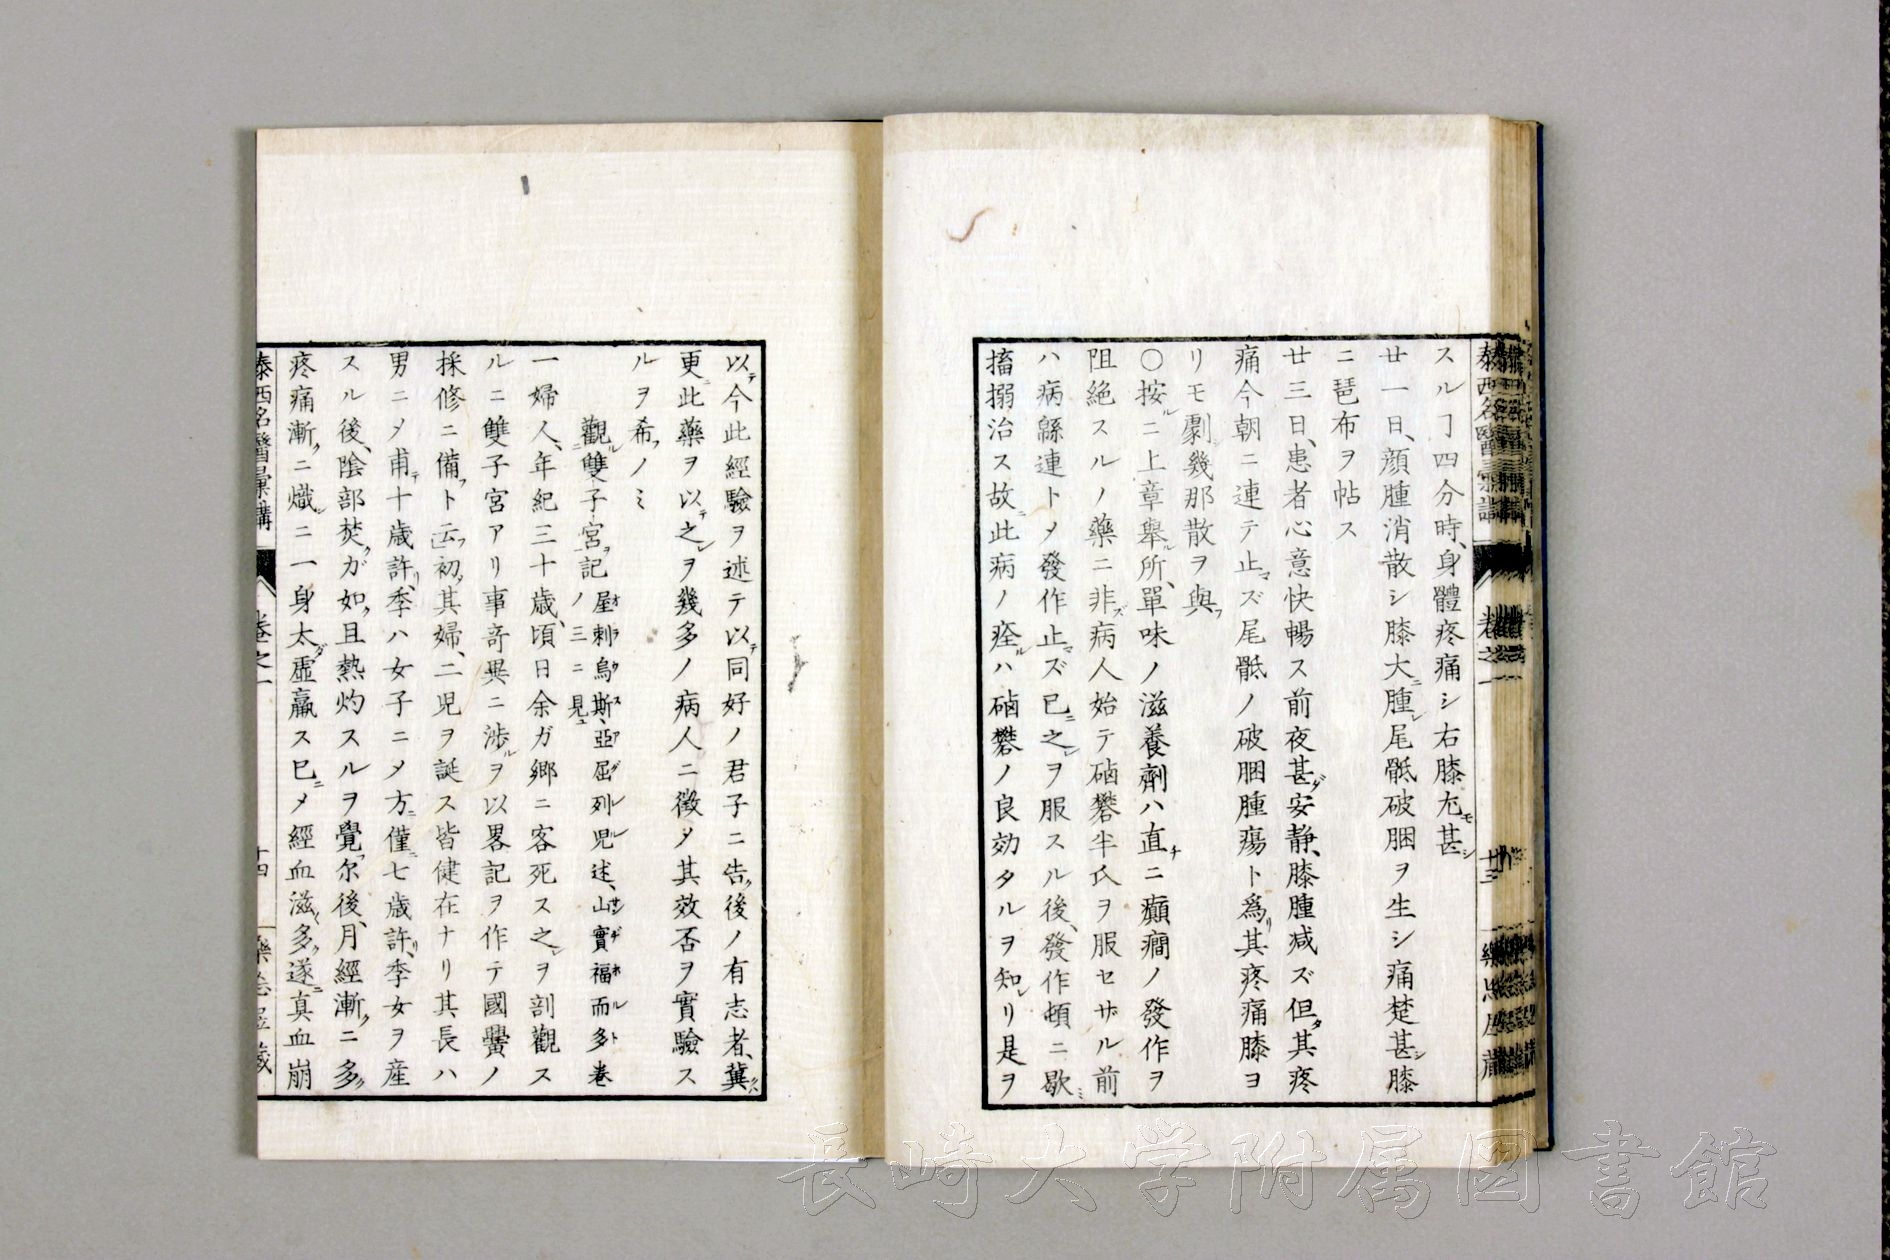 スルヿ四分時、身體疼痛シ右膝尤モ甚シ
廿一日、顔腫消散シ膝大ニ腫レ尾骶破䐃ヲ生シ痛楚甚シ膝
ニ琶布ヲ帖ス
廿三日、患者心意快暢ス前夜甚ダ安静、膝腫减ズ但タ其疼
痛今朝ニ連テ止マズ尾骶ノ破䐃腫瘍ト為リ其疼痛膝ヨ
リモ劇シ幾那散ヲ與フ
〇按ルニ上章舉ル所、單味ノ滋養劑ハ直チニ癲癇ノ發作ヲ
阻絶スルノ藥ニ非ズ病人始テ硇礬半氏ヲ服セザル前
ハ病緜連トメ發作止マズ已ニ之レヲ服スル後、發作頓ニ歇ミ
搐搦治ス故ニ此病ノ痊ルハ硇礬ノ良効タルヲ知レリ是ヲ
以テ今此經驗ヲ述テ以テ同好ノ君子ニ告ク後ノ有志者、冀クハ
更ニ此藥ヲ以テ之レヲ幾多ノ病人ニ徴メ其效否ヲ實驗ス
ルヲ希フノミ
觀ル雙子宮ヲ記 屋刺烏斯、亞屈列兒述、山實福而多卷
ノ三ニ見ユ
一婦人、年紀三十歳、頃日余ガ郷ニ客死ス之レヲ剖觀ス
ルニ雙子宮アリ事竒異ニ渉ルヲ以畧記ヲ作テ國黌ノ
採修ニ備フト云フ初メ其婦、二児ヲ誕ス皆健在ナリ其長ハ
男ニメ甫テ十歳許リ、季ハ女子ニメ方ニ僅ニ七歳許リ、季女ヲ産
スル後、陰部焚クガ如ク、且熱灼スルヲ覺フ尓後、月經漸クニ多ク
疼痛漸クニ熾ニ一身太ダ虚羸ス已ニメ經血滋〻多ク遂ニ真血崩
泰西名醫彙講
卷之一
十四
長崎大学附属図書館